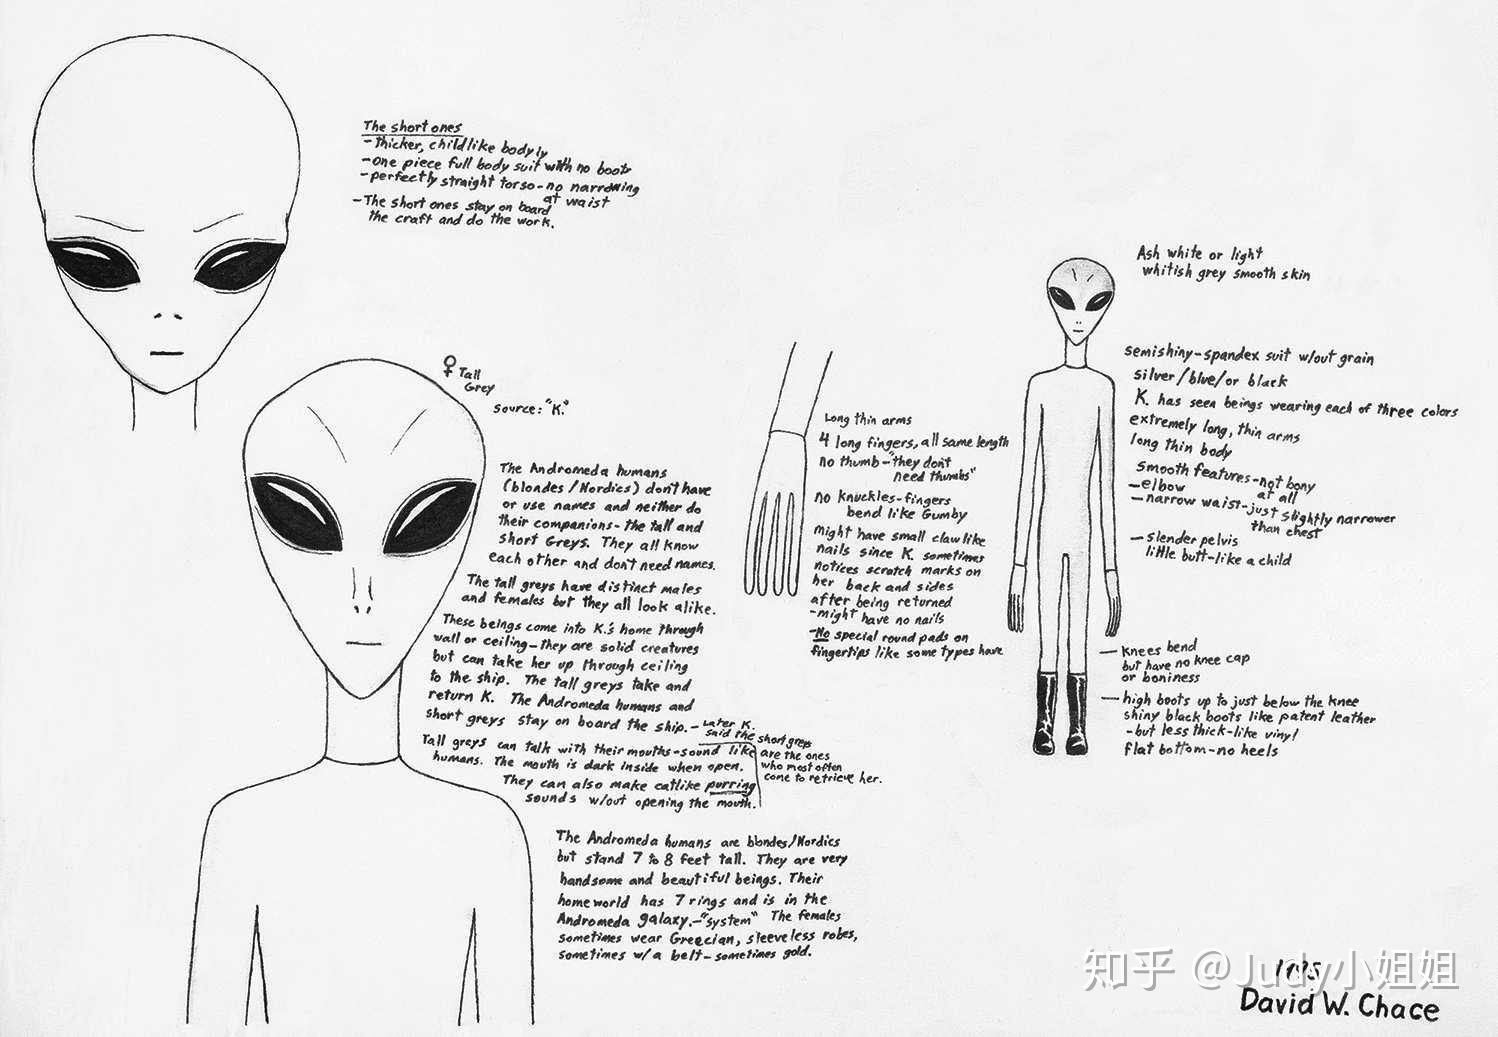 The short ones
-thicker, childlike bodyly
-one piece full body suit with no boots
-perfectly straight torso-no narrowing
at waist
-The short ones stay on board
the craft and do the work.
♀ Tall
Grey
source: "K."
The Andromeda humans
(blondes/Nordics) don't have
or use names and neither do
their companions-the tall and
short Greys. They all know
each other and don't need names.
The tall greys have distinct males
and females but they all look alike.
These beings come into K.'s home through
wall or ceiling-they are solid creatures
but can take her up through ceiling
to the ship. The tall greys take and
return K. The Andromeda humans and
short greys stay on board the ship.-Later K.
said the short greys
are the ones
who most often
come to retrieve her.
Tall greys can talk with their mouths-sound like
humans. The mouth is dark inside when open.
They can also make catlike purring
sounds w/out opening the mouth.
The Andromeda humans are blondes/Nordics
but stand 7 to 8 feet tall. They are very
handsome and beautiful beings. Their
homeworld has 7 rings and is in the
Andromeda galaxy.-"system" The females
sometimes wear Greecian, sleeveless robes,
sometimes w/a belt-sometimes gold.
Long thin arms
4 long fingers, all same length
no thumb-"they don't
need thumbs"
no knuckles-fingers
bend like Gumby
might have small clawlike
nails since K. sometimes
notices scratch marks on
her back and sides
after being returned
-might have no nails
-No special round pads on
fingertips like some types have
Ash white or light
whitish grey smooth skin
semishiny-spandex suit w/out grain
silver/blue/or black
K. has seen beings wearing each of three colors
extremely long, thin arms
long thin body
smooth features-not bony
at all
-elbow
-narrow waist-just slightly narrower
than chest
-slender pelvis
little butt-like a child
-knees bend
but have no knee cap
or boniness
-high boots up to just below the knee
shiny black boots like patent leather
-but less thick-like vinyl
flat bottom-no heels
知乎 @Judy小姐姐
David W. Chace